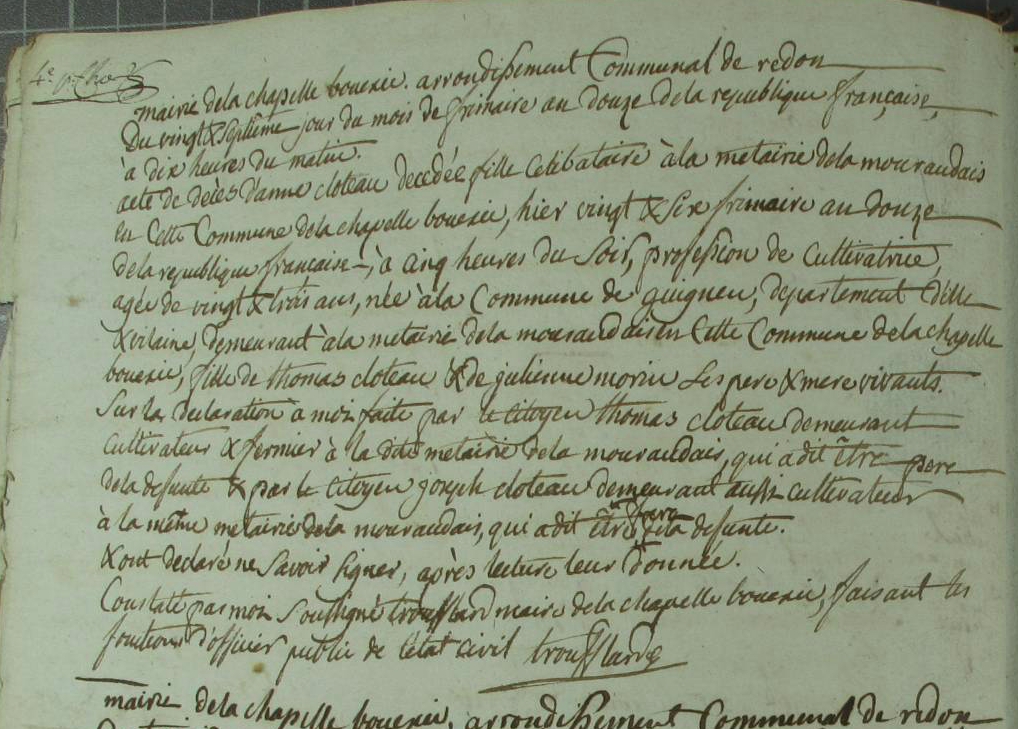 4e.
mairie dela chapelle bouexie. arrondissement Communal de redon
Du vingt & septième jour du mois de frimaire an douze dela republique française,
à dix heures du matin.
acte de décès d'anne cloteau decedée fille celibataire à la metairie dela mouraudais
en Cette Commune dela chapelle bouexie, hier vingt & six frimaire an douze
dela republique française, à cinq heures du soir, profession de cultivatrice,
agée de vingt & trois ans, née à la Commune de guignen, departement d'ille
& vilaine, demeurant à la metairie dela mouraudais en Cette Commune dela chapelle
bouexie, fille de thomas cloteau & de julienne morin ses pere & mere vivants.
Sur la declaration à moi faite par le citoyen thomas cloteau demeurant
cultivateur & fermier à la dite metairie dela mouraudais, qui a dit être pere
dela defunte & par le citoyen joseph cloteau demeurant aussi cultivateur
à la même metairie dela mouraudais, qui a dit être frere dela defunte.
& ont declaré ne savoir signer, après lecture leur donnée.
Constaté par moi soussigné troufflard maire dela chapelle bouexie, faisant les
fonctions d'officier public de l'état civil troufflard
mairie dela chapelle bouexie, arrondissement Communal de redon